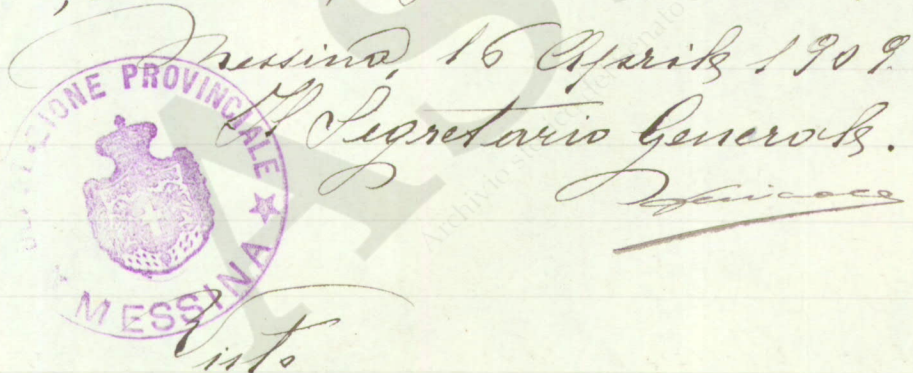 Messina, 16 Aprile 1909.
Il Segretario Generale.
ZIONE PROVINCIALE
MESSINA
Visto
AS
Archivio sto